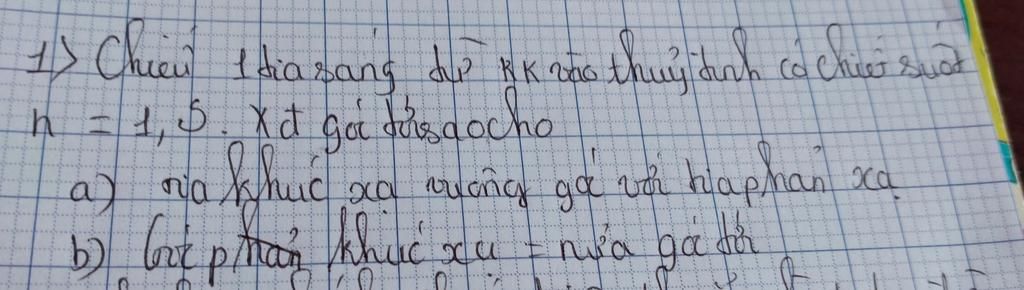 1> Chiếu 1 tia sáng từ KK vào thuỷ tinh có chiết suất
n = 1,5. Xđ góc tới sao cho
a) Tia khúc xạ vuông góc với tia phản xạ.
b) Góc khúc xạ = nửa góc tới